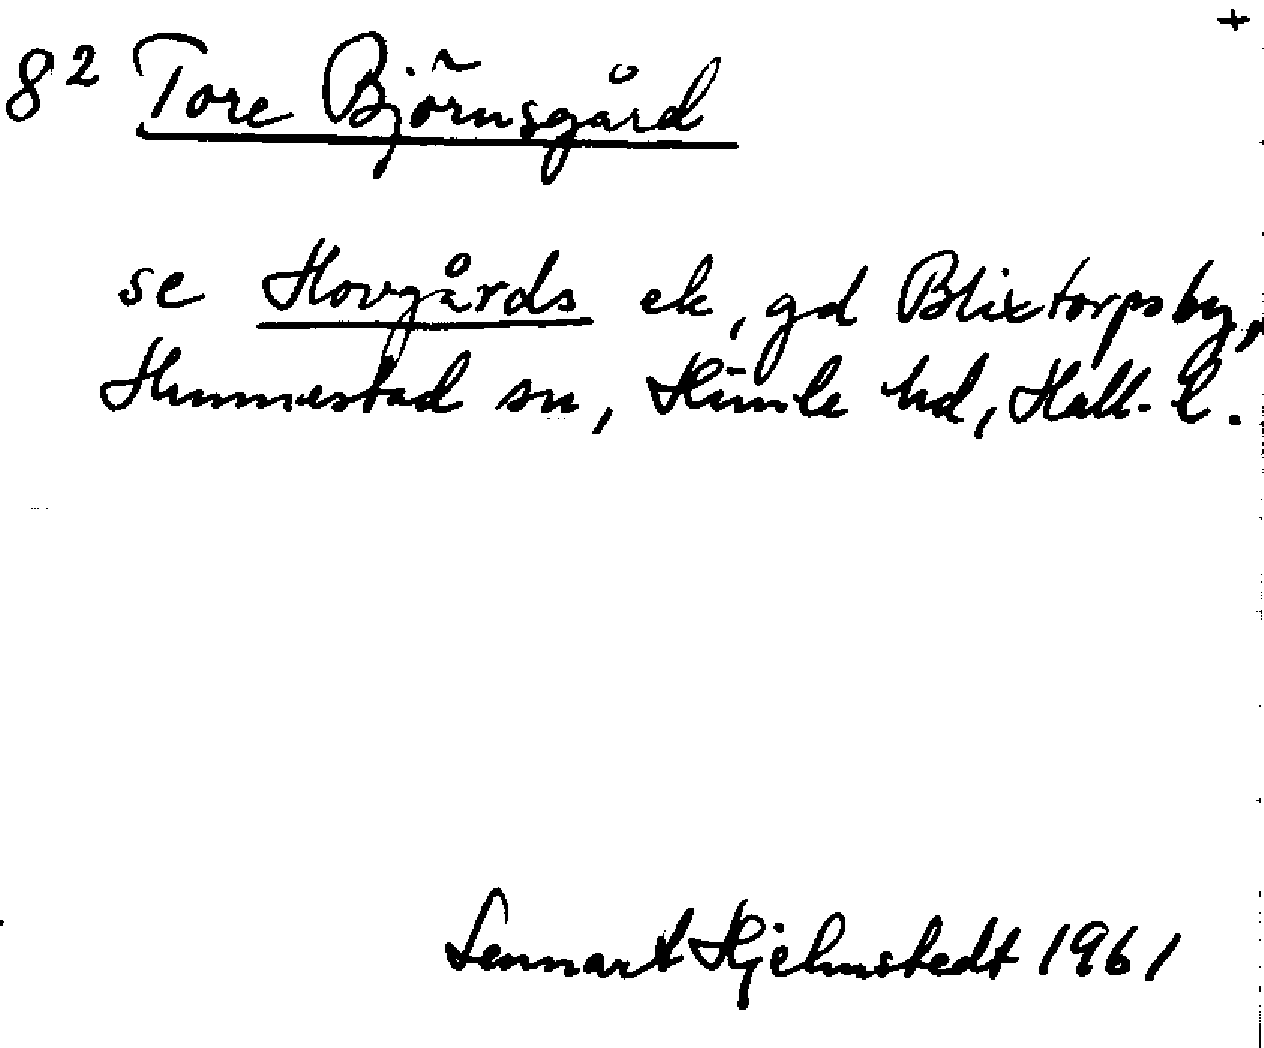 +
8² Tore Björnsgård
se Hovgårds ek, gd Blixtorps by,
Hunnestad sn, Himle hd, Hall. l.
Lennart Hjelmstedt 1961